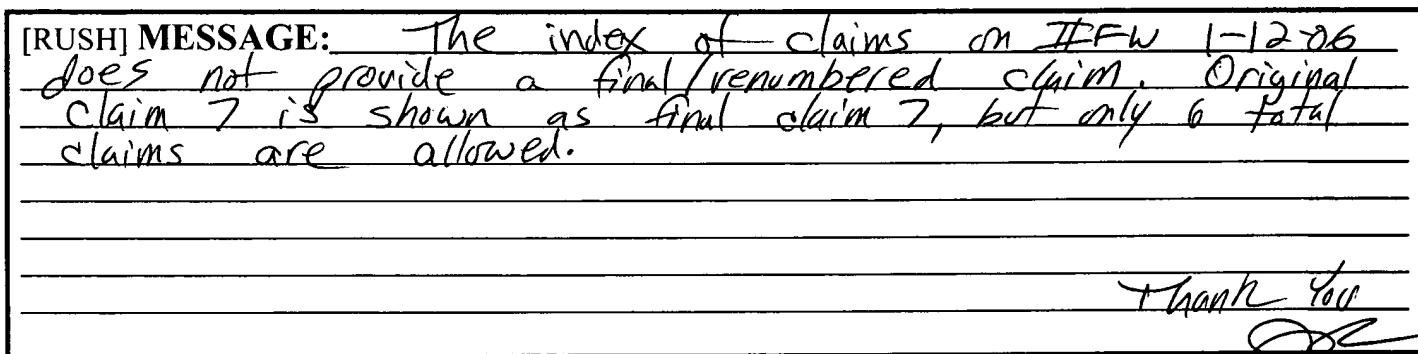 [RUSH] MESSAGE: The index of claims on IFW 1-12-06
does not provide a final/renumbered claim. Original
claim 7 is shown as final claim 7, but only 6 total
claims are allowed.
Thank You